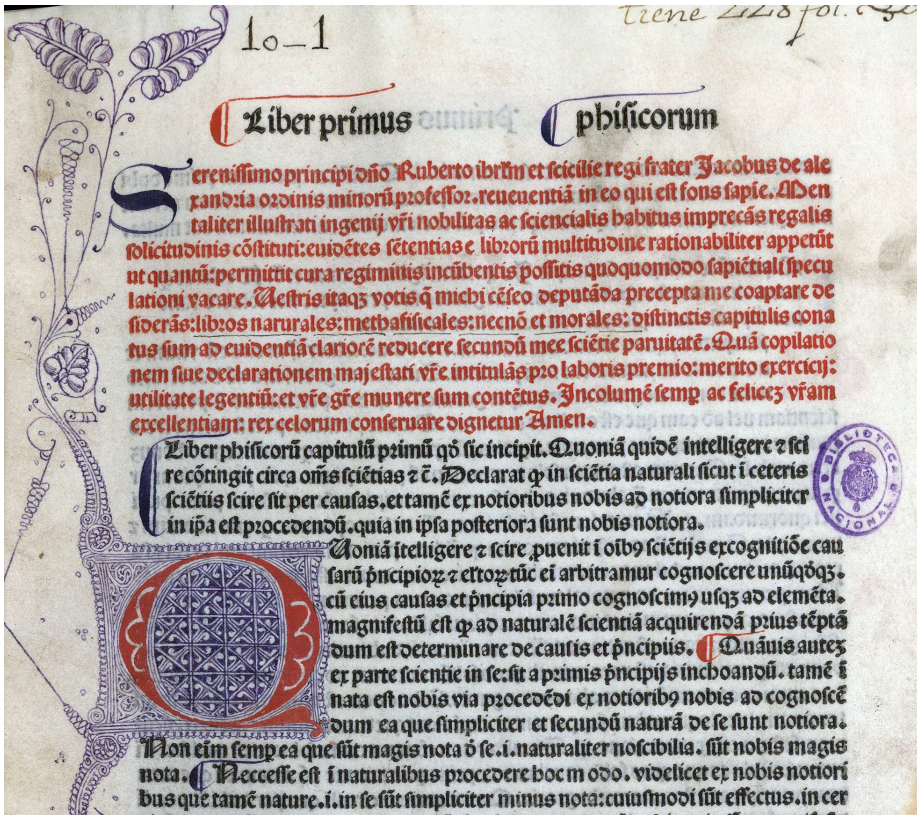 10-1
tiene 228 fol.
Liber primus phisicorum
Serenissimo principi dño Ruberto ihrlm et scicilie regi frater Jacobus de ale
xandria ordinis minorū professor.reueuentiā in eo qui est fons sapie.Men
taliter illustrati ingenij vr̄i nobilitas ac sciencialis habitus imprecās regalis
solicitudinis cōstituti:euidētes sētentias e librorū multitudine rationabiliter appetūt
ut quantū:permittit cura regiminis incūbentis possitis quoquomodo sapiētiali specu
lationi vacare.Uestris itaqꝫ votis q̄ michi cēseo deputāda precepta me coaptare de
siderās:libros narurales:methafisicales:necnō et morales: distinctis capitulis cona
tus sum ad euidentiā clariorē reducere secundū mee sciētie paruitatē.Quā copilatio
nem siue declarationem majestati vr̄e intitulās pro laboris premio:merito exercicij:
utilitate legentiū:et vr̄e gr̄e munere sum contētus.Incolumē semꝑ ac feliceꝫ vr̄am
excellentiam: rex celorum conseruare dignetur Amen.
Liber phisicorū capitulū primū qď sic incipit.Quoniā quidē intelligere ⁊ sci
re cōtingit circa om̄s sciētias ⁊ c̄.Declarat ꝙ in sciētia naturali sicut ī ceteris
sciētiis scire sit per causas.et tamē ex notioribus nobis ad notiora simpliciter
in ip̄a est procedendū.quia in ipsa posteriora sunt nobis notiora.
QUoniā ītelligere ⁊ scire ꝓuenit ī oībꝰ sciētijs excognitiōe cau
sarū p̄ncipioꝝ ⁊ elr̄toꝝ tūc eī arbitramur cognoscere unūqďqꝫ.
cū eius causas et p̄ncipia primo cognoscimꝰ usqꝫ ad elemēta.
magnifestū est ꝙ ad naturalē scientiā acquirendā prius tēptā
dum est determinare de causis et p̄ncipiis. Quāuis auteꝫ
ex parte scientie in se:sit a primis p̄ncipijs inchoandū.tamē ī
nata est nobis via procedēdi ex notioribꝰ nobis ad cognoscē
dum ea que simpliciter et secundū naturā de se sunt notiora.
Non eīm semꝑ ea que sūt magis nota ď se.i.naturaliter noscibilia.sūt nobis magis
nota. Neccesse est ī naturalibus procedere hoc m odo.videlicet ex nobis notiori
bus que tamē nature.i.in se sūt simpliciter minus nota:cuiusmodi sūt effectus.in cer
BIBLIOTECA NACIONAL